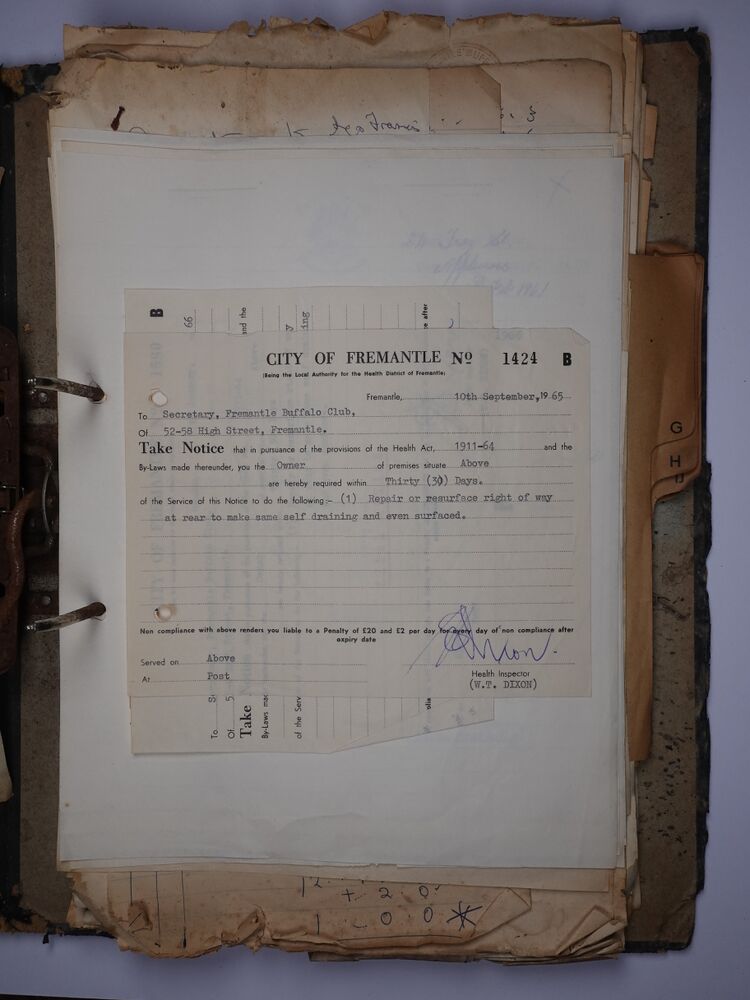 B
66
and the
ing
e after
CITY OF FREMANTLE No 1424 B
(Being the Local Authority for the Health District of Fremantle)
Fremantle, 10th September, 1965
To Secretary, Fremantle Buffalo Club,
Of 52-58 High Street, Fremantle.
Take Notice that in pursuance of the provisions of the Health Act, 1911-64 and the
By-Laws made thereunder, you the Owner of premises situate Above
are hereby required within Thirty (30) Days.
of the Service of this Notice to do the following:- (1) Repair or resurface right of way
at rear to make same self draining and even surfaced.
Non compliance with above renders you liable to a Penalty of £20 and £2 per day for every day of non compliance after
expiry date
Served on Above
At Post
Health Inspector
(W.T. DIXON)
To S
Of 5
Take
By-Laws mac
of the Serv
G
H
IJ
12
+ 2 0
1 0 0